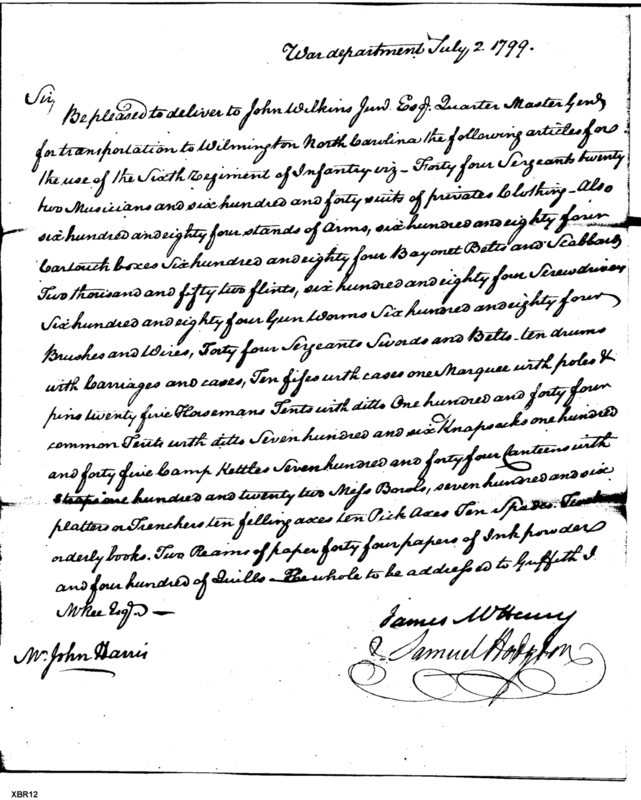 War department July, 2 1799.
Sir,
Be pleased to deliver to John Wilkins Jun. Esq. Quarter Master Genl
for transportation to Wilmington North Carolina the following articles for
the use of the Sixth Regiment of Infantry viz - Forty four Sergeants twenty
two Musicians and six hundred and forty suits of privates Clothing - Also
six hundred and eighty four stands of Arms, six hundred and eighty four
Cartouch boxes Six hundred and eighty four Bayonet Belts and Scabbards
Two thousand and fifty two flints, six hundred and eighty four Screwdrivers
Six hundred and eighty four Gun Worms Six hundred and eighty four
Brushes and Wires, Forty four Sergeants Swords and Belts - ten drums
with Carriages and cases, Ten fifes with cases one Marquee with poles &
pins twenty five Horsemans Tents with ditto One hundred and forty four
common Tents with ditto Seven hundred and six Knapsacks one hundred
and forty five Camp Kettles Seven hundred and forty four Canteens with
straps one hundred and twenty two Mess Bowls, seven hundred and six
platters or Trenchers ten felling axes ten Pick Axes Ten Spades.
orderly books. Two Reams of paper forty four papers of Ink powder
and four hundred of Quills - The whole to be addressed to Griffith J
McRee Esq. -
James McHenry
Samuel Hodgdon
Mr. John Harris
XBR12